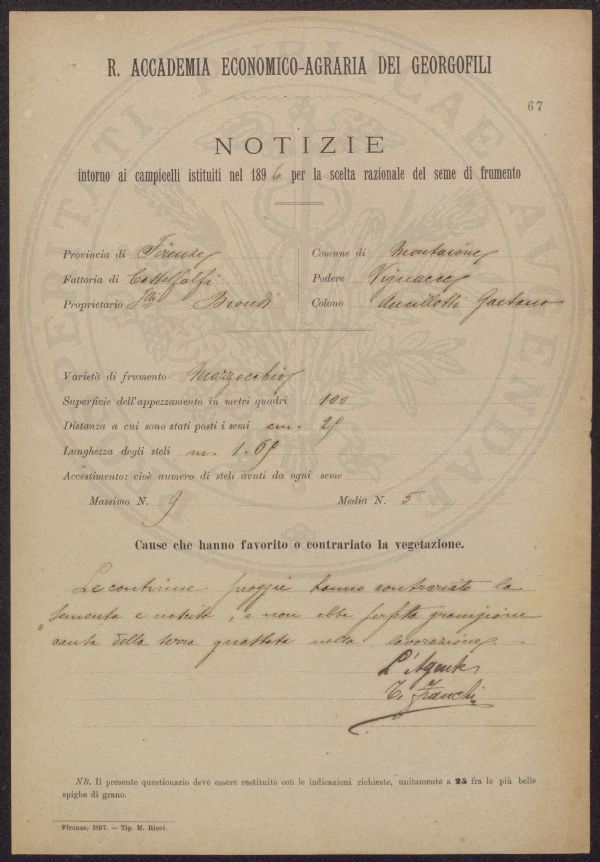 R. ACCADEMIA ECONOMICO-AGRARIA DEI GEORGOFILI
67
NOTIZIE
intorno ai campicelli istituiti nel 1896 per la scelta razionale del seme di frumento
Provincia di Firenze
Comune di Montaione
Fattoria di Castelfalfi
Podere Vignacce
Proprietario F.lli Biondi
Colono Ancillotti Gaetano
Varietà di frumento Mazzocchio
Superficie dell'appezzamento in metri quadri 100
Distanza a cui sono stati posti i semi cm.
Lunghezza degli steli m. 1.
Accestimento: cioè numero di steli avuti da ogni seme
Massimo N. 9 Media N. 5
Cause che hanno favorito o contrariato la vegetazione.
Le continue pioggie hanno contrariato la
sementa e nascita, e non ebbe perfetta granigione
causa della terra guastata nella lavorazione
L'Agente
Franchi
NB. Il presente questionario deve essere restituito con le indicazioni richieste, unitamente a 25 fra le più belle
spighe di grano.
Firenze, 1897. — Tip. M. Ricci.